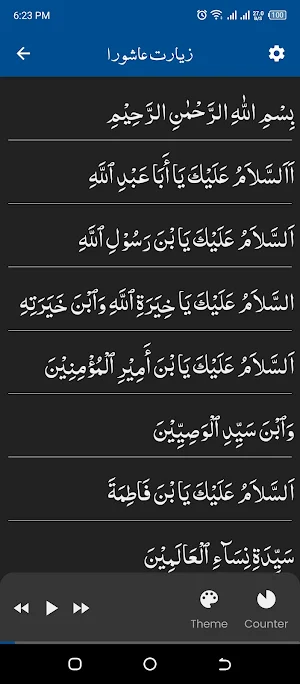 6:23 PM 27.0 B/S 100
زيارت عاشورا
بِسْمِ اللّٰهِ الرَّحْمٰنِ الرَّحِيْمِ
اَلسَّلاَمُ عَلَيْكَ يَا أَبَا عَبْدِ ٱللَّهِ
اَلسَّلاَمُ عَلَيْكَ يَا بْنَ رَسُوْلِ ٱللَّهِ
السَّلاَمُ عَلَيْكَ يَا خِيَرَةِ ٱللَّهِ وَٱبْنَ خَيَرَتِهِ
اَلسَّلاَمُ عَلَيْكَ يَا بْنَ أَمِيْرِ ٱلْمُؤْمِنِيْنَ
وَٱبْنَ سَيِّدِ ٱلْوَصِيِّيْنَ
اَلسَّلاَمُ عَلَيْكَ يَا بْنَ فَاطِمَةَ
سَيِّدَةِ نِسَاۤءِ ٱلْعَالَمِيْنَ
Theme Counter